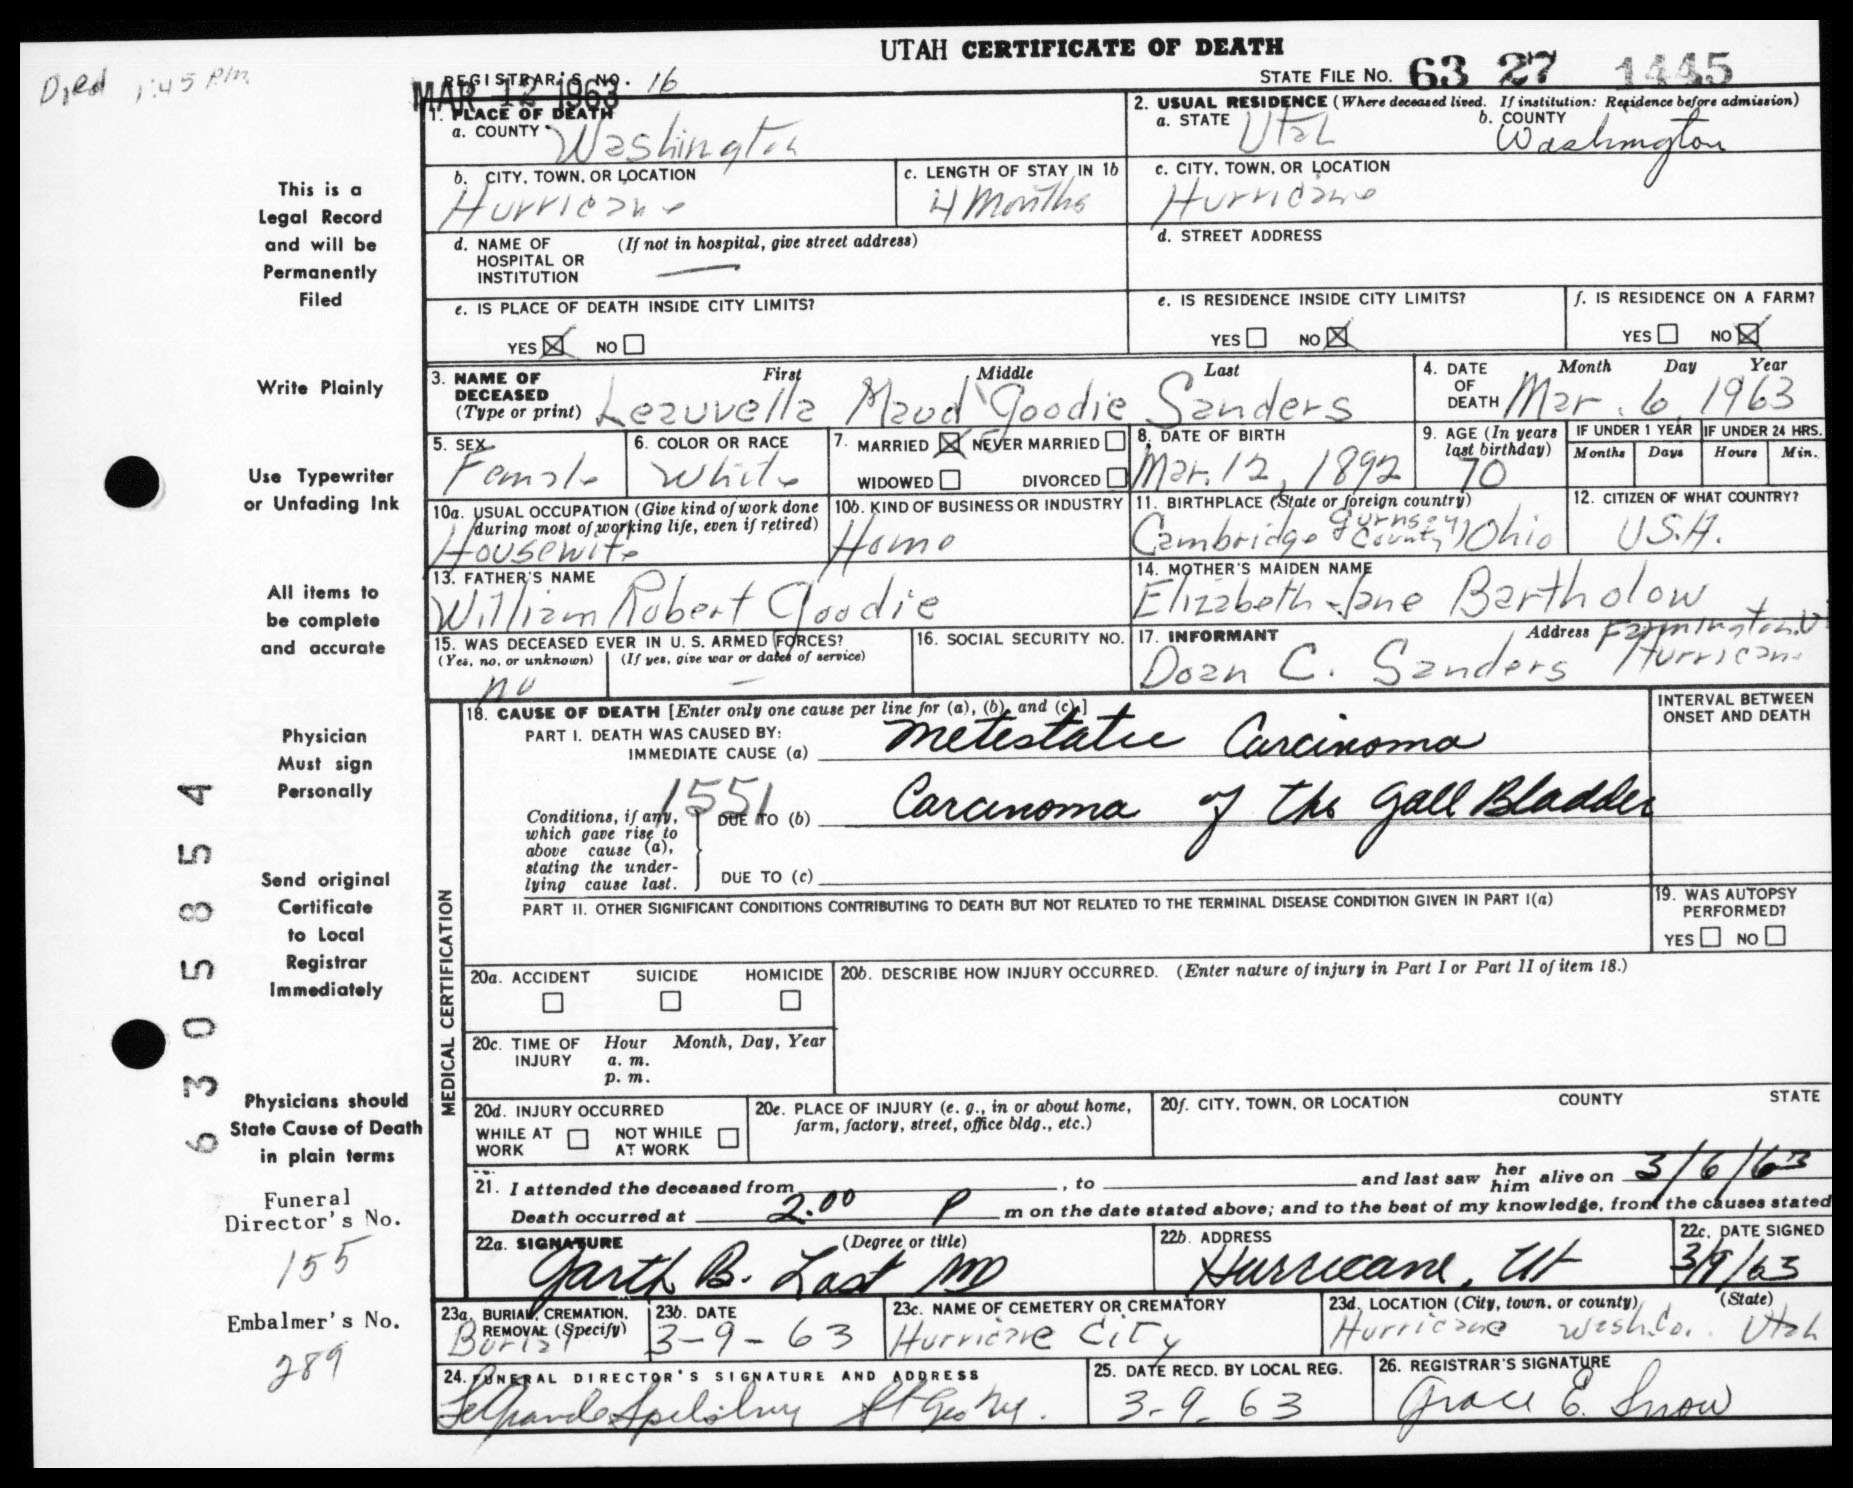 UTAH CERTIFICATE OF DEATH
Died 1:45 P.M.
REGISTRAR'S NO. 16
STATE FILE NO. 63 27 1445
MAR 12 1963
1. PLACE OF DEATH
a. COUNTY Washington
2. USUAL RESIDENCE (Where deceased lived. If institution: Residence before admission)
a. STATE Utah
b. COUNTY Washington
b. CITY, TOWN, OR LOCATION
Hurricane
c. LENGTH OF STAY IN 1b
4 Months
c. CITY, TOWN, OR LOCATION
Hurricane
d. NAME OF HOSPITAL OR INSTITUTION
(If not in hospital, give street address)
—
d. STREET ADDRESS
e. IS PLACE OF DEATH INSIDE CITY LIMITS?
YES ☒ NO ☐
e. IS RESIDENCE INSIDE CITY LIMITS?
YES ☐ NO ☒
f. IS RESIDENCE ON A FARM?
YES ☐ NO ☒
3. NAME OF DECEASED (Type or print)
First Middle Last
Leauvella Maud Goodie Sanders
4. DATE OF DEATH
Month Day Year
Mar. 6, 1963
5. SEX
Female
6. COLOR OR RACE
White
7. MARRIED ☒ NEVER MARRIED ☐
WIDOWED ☐ DIVORCED ☐
8. DATE OF BIRTH
Mar. 12, 1892
9. AGE (In years last birthday)
70
IF UNDER 1 YEAR
Months Days
IF UNDER 24 HRS.
Hours Min.
10a. USUAL OCCUPATION (Give kind of work done during most of working life, even if retired)
Housewife
10b. KIND OF BUSINESS OR INDUSTRY
Home
11. BIRTHPLACE (State or foreign country)
Cambridge (Gurnsey County) Ohio
12. CITIZEN OF WHAT COUNTRY?
U.S.A.
13. FATHER'S NAME
William Robert Goodie
14. MOTHER'S MAIDEN NAME
Elizabeth Jane Bartholow
15. WAS DECEASED EVER IN U. S. ARMED FORCES?
(Yes, no, or unknown) (If yes, give war or dates of service)
no —
16. SOCIAL SECURITY NO.
17. INFORMANT Address
Doan C. Sanders
Farmington, U
Hurricane
MEDICAL CERTIFICATION
18. CAUSE OF DEATH [Enter only one cause per line for (a), (b), and (c).]
INTERVAL BETWEEN ONSET AND DEATH
PART I. DEATH WAS CAUSED BY:
IMMEDIATE CAUSE (a) Metestatic Carcinoma
1551
Conditions, if any, which gave rise to above cause (a), stating the underlying cause last.
DUE TO (b) Carcinoma of the Gall Bladder
DUE TO (c)
PART II. OTHER SIGNIFICANT CONDITIONS CONTRIBUTING TO DEATH BUT NOT RELATED TO THE TERMINAL DISEASE CONDITION GIVEN IN PART I(a)
19. WAS AUTOPSY PERFORMED?
YES ☐ NO ☐
20a. ACCIDENT SUICIDE HOMICIDE
☐ ☐ ☐
20b. DESCRIBE HOW INJURY OCCURRED. (Enter nature of injury in Part I or Part II of item 18.)
20c. TIME OF INJURY
Hour Month, Day, Year
a. m.
p. m.
20d. INJURY OCCURRED
WHILE AT WORK ☐ NOT WHILE AT WORK ☐
20e. PLACE OF INJURY (e. g., in or about home, farm, factory, street, office bldg., etc.)
20f. CITY, TOWN, OR LOCATION COUNTY STATE
21. I attended the deceased from , to and last saw her him alive on 3/6/63
Death occurred at 2:00 P m on the date stated above; and to the best of my knowledge, from the causes stated
22a. SIGNATURE (Degree or title)
Garth B. Last MD
22b. ADDRESS
Hurricane, Ut
22c. DATE SIGNED
3/9/63
23a. BURIAL, CREMATION, REMOVAL (Specify)
Burial
23b. DATE
3-9-63
23c. NAME OF CEMETERY OR CREMATORY
Hurricane City
23d. LOCATION (City, town, or county) (State)
Hurricane Wash. Co. Utah
24. FUNERAL DIRECTOR'S SIGNATURE AND ADDRESS
LeGrande Spilsbury St George
25. DATE RECD. BY LOCAL REG.
3-9-63
26. REGISTRAR'S SIGNATURE
Grace E. Snow
This is a
Legal Record
and will be
Permanently
Filed
Write Plainly
Use Typewriter
or Unfading Ink
All items to
be complete
and accurate
Physician
Must sign
Personally
Send original
Certificate
to Local
Registrar
Immediately
Physicians should
State Cause of Death
in plain terms
Funeral
Director's No.
155
Embalmer's No.
289
63058854